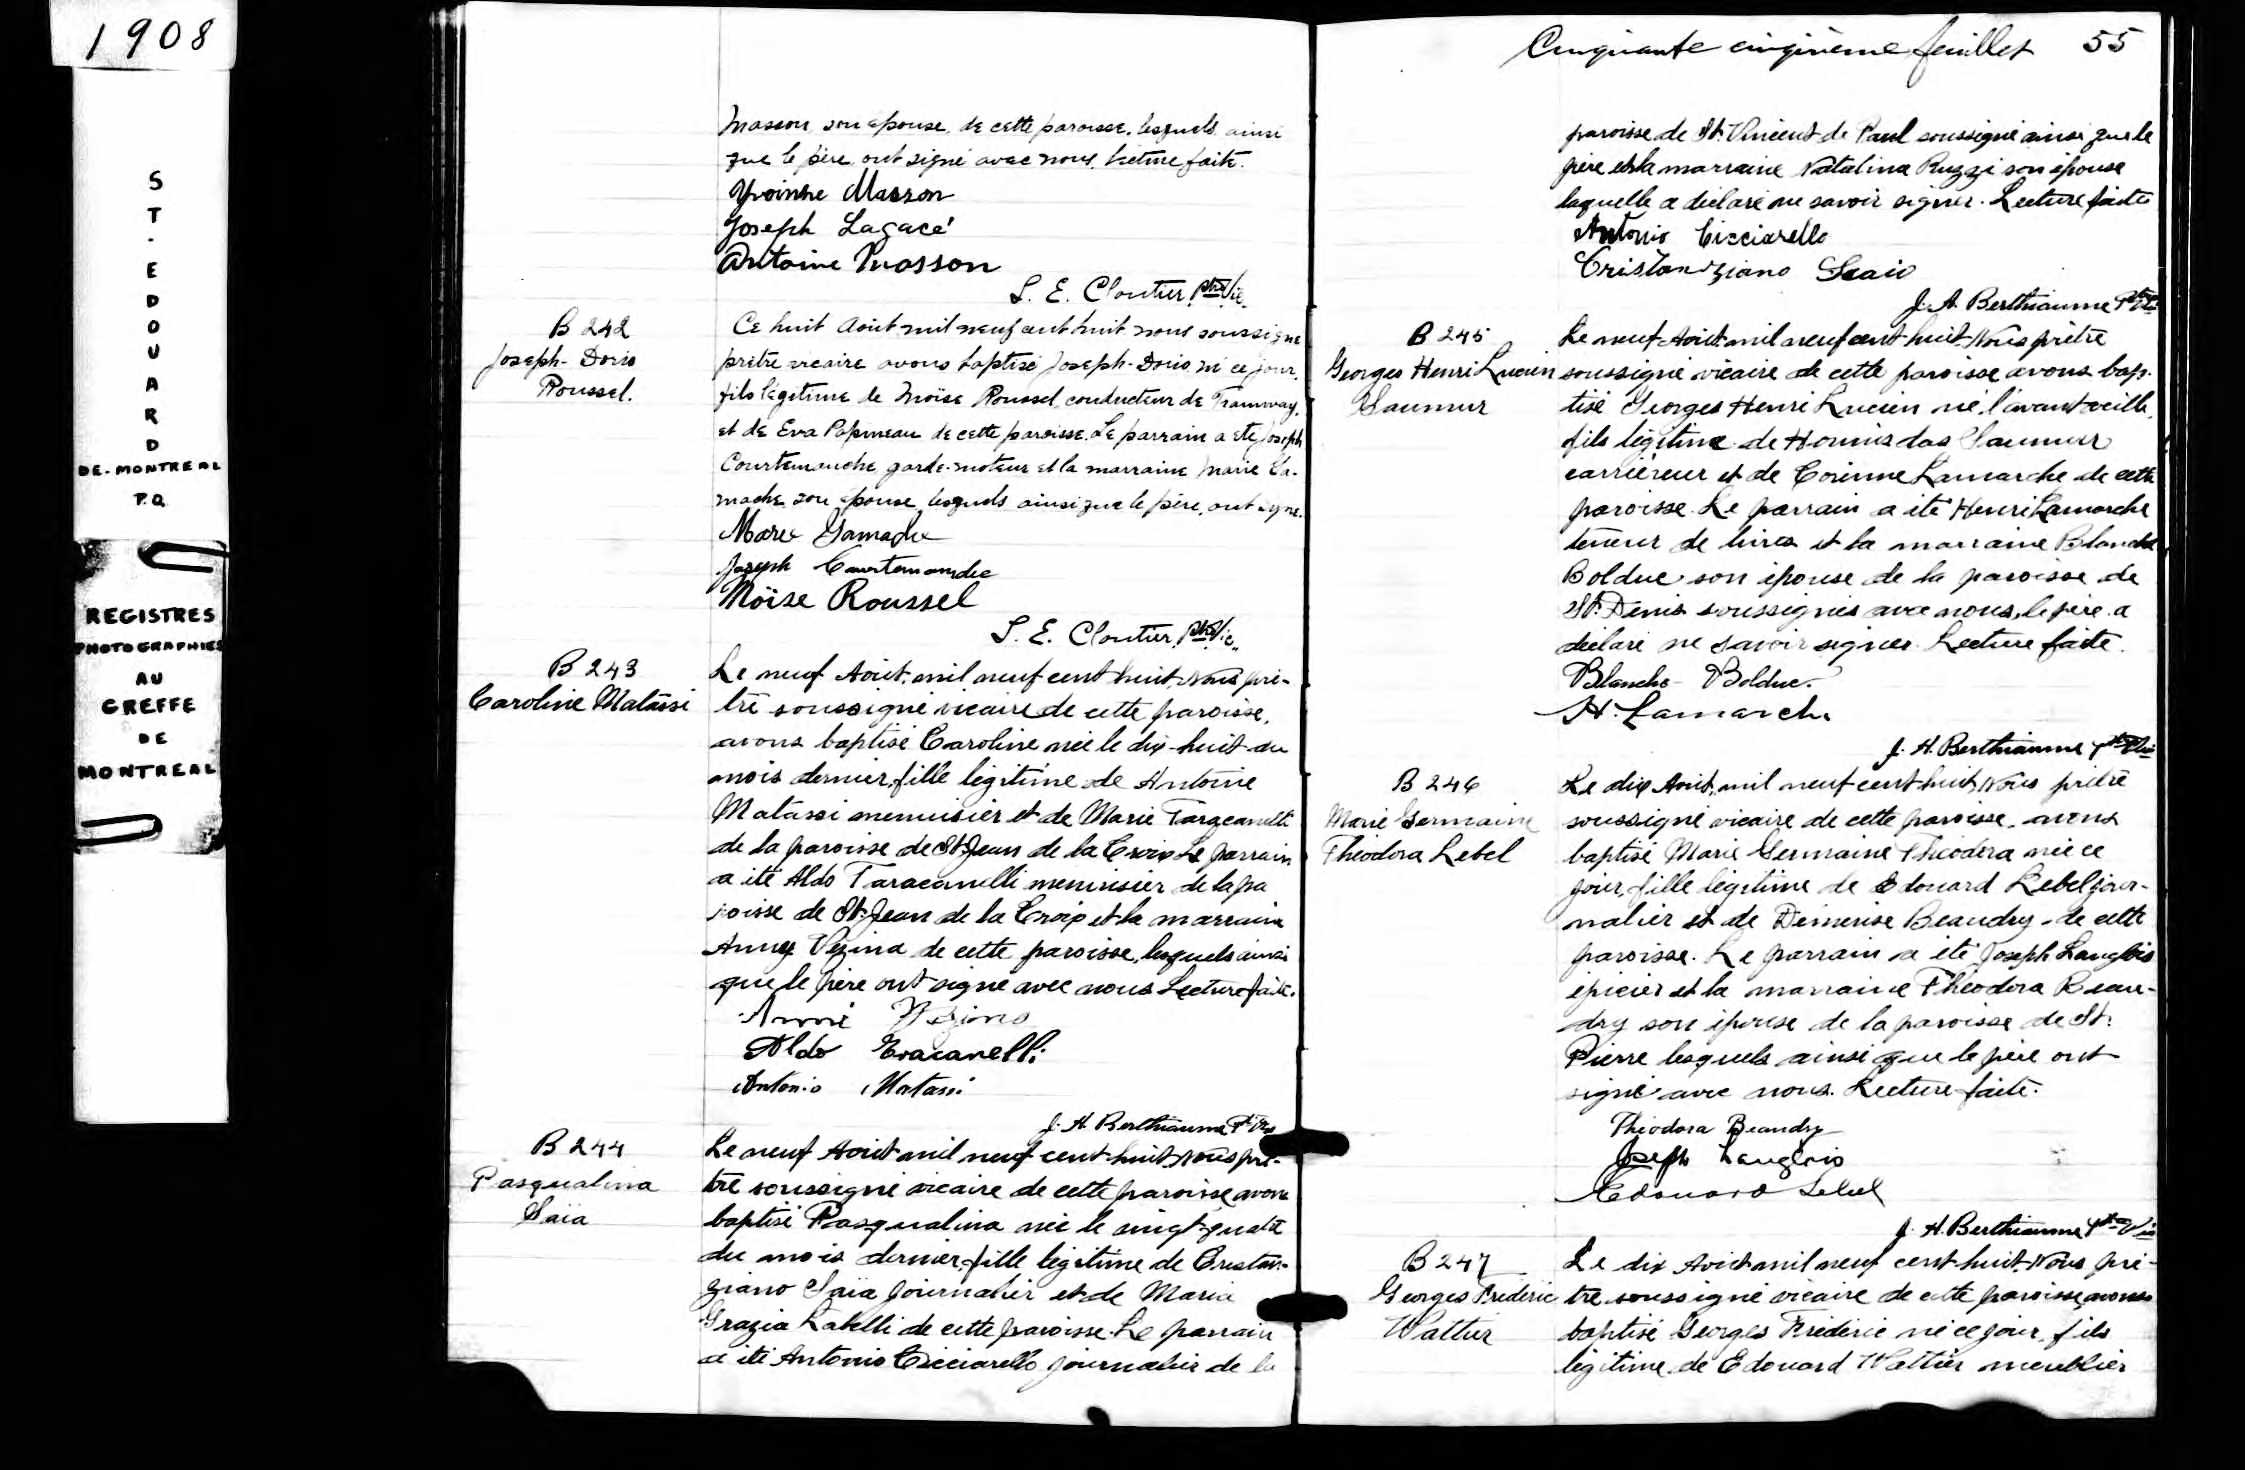 1908
ST. EDOUARD
DE. MONTREAL
P.Q.
REGISTRES
PHOTOGRAPHIES
AU
GREFFE
DE
MONTREAL
Masson son épouse, de cette paroisse, lesquels ainsi
que le père ont signé avec nous. Lecture faite.
Yvoinne Masson
Joseph Lagacé
Antoine Masson
S. E. Cloutier, Ptre Vic.
B 242
Joseph-Doris
Roussel.
Ce huit Août mil neuf cent huit nous soussigné
prêtre vicaire avons baptisé Joseph-Doris né ce jour,
fils légitime de Moïse Roussel, conducteur de Tramway,
et de Eva Papineau de cette paroisse. Le parrain a été Joseph
Courtemanche, garde-moteur et la marraine Marie Ga-
mache son épouse, lesquels ainsi que le père, ont signé.
Marie Gamache
Joseph Courtemanche
Moïse Roussel
S. E. Cloutier, Ptre Vic.
B 243
Caroline Matassi
Le neuf Août, mil neuf cent huit, Nous prê-
tre soussigné vicaire de cette paroisse,
avons baptisé Caroline née le dix-huit du
mois dernier, fille légitime de Antoine
Matassi menuisier et de Marie Taracanelli
de la paroisse de St. Jean de la Croix Le parrain
a été Aldo Taracanelli menuisier de la pa
roisse de St. Jean de la Croix et la marraine
Anny Vezina de cette paroisse, lesquels ainsi
que le père ont signé avec nous Lecture faite.
Anni Vezina
Aldo Tracanelli
Antonio Matassi
J. H. Berthiaume Ptre Vic
B 244
Pasqualina
Saïa
Le neuf Août mil neuf cent huit, Nous prê-
tre soussigné vicaire de cette paroisse avons
baptisé Pasqualina née le vingt-quatre
du mois dernier, fille légitime de Cristan-
ziano Saïa journalier et de Maria
Grazia Labelli de cette paroisse. Le parrain
a été Antonio Cicciarello journalier de la
Cinquante cinquième feuillet 55
paroisse de St. Vincent de Paul soussigné ainsi que le
père et la marraine Natalina Ruzzi son épouse
laquelle a déclaré ne savoir signer. Lecture faite
Antonio Cicciarello
Cristanziano Saaio
J. A. Berthiaume Ptre Vic
B 245
Georges Henri Lucien
Saumur
Le neuf Août mil neuf cent huit, Nous prêtre
soussigné vicaire de cette paroisse avons bap-
tisé Georges Henri Lucien né l'avant veille,
fils légitime de Hormisdas Saumur
carriéreur et de Corinne Lamarche de cette
paroisse. Le parrain a été Henri Lamarche
teneur de livres et la marraine Blanche
Bolduc son épouse de la paroisse de
St. Denis soussignés avec nous, le père a
déclaré ne savoir signer. Lecture faite.
Blanche Bolduc.
H. Lamarche
J. H. Berthiaume Ptre Vic
B 246
Marie Germaine
Theodora Lebel
Le dix Août, mil neuf cent huit, Nous prêtre
soussigné vicaire de cette paroisse, avons
baptisé Marie Germaine Théodora née ce
jour, fille légitime de Edouard Lebel jour-
nalier et de Démerise Beaudry de cette
paroisse. Le parrain a été Joseph Langlois
épicier et la marraine Théodora Beau-
dry son épouse de la paroisse de St.
Pierre lesquels ainsi que le père ont
signé avec nous. Lecture faite.
Théodora Beaudry
Joseph Langlois
Edouard Lebel
J. H. Berthiaume Ptre Vic
B 247
Georges Frédéric
Wattier
Le dix Août mil neuf cent huit, Nous prê-
tre soussigné vicaire de cette paroisse, avons
baptisé Georges Frédéric né ce jour, fils
légitime de Edouard Wattier meublier